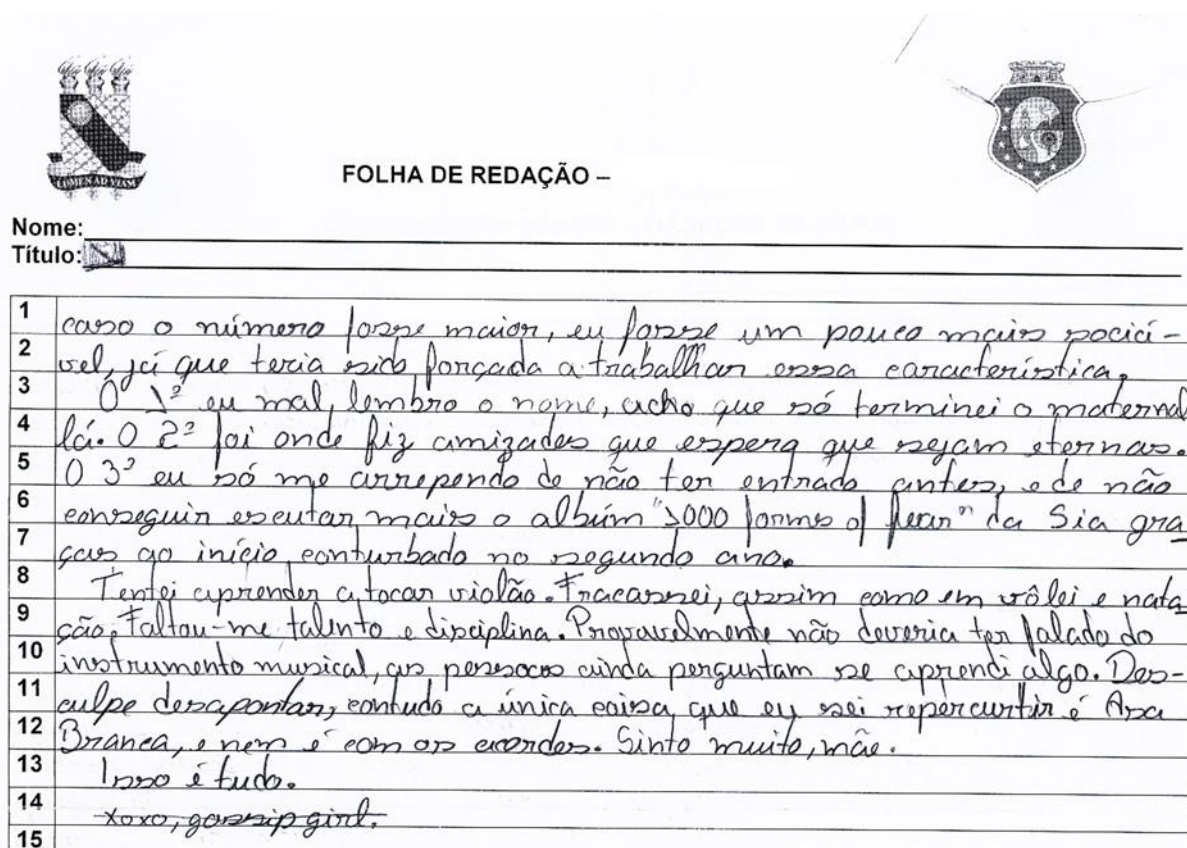 LUMEN AD VIAM
FOLHA DE REDAÇÃO –
Nome:
Título:
1 caso o número fosse maior, eu fosse um pouco mais sociá-
2 vel, já que teria sido forçada a trabalhar essa característica.
3 O 1º eu mal lembro o nome, acho que só terminei o maternal
4 lá. O 2º foi onde fiz amizades que espero que sejam eternas.
5 O 3º eu só me arrependo de não ter entrado antes, e de não
6 conseguir escutar mais o albúm "1000 forms of fear" da Sia gra
7 ças ao início conturbado no segundo ano.
8 Tentei aprender a tocar violão. Fracassei, assim como em vôlei e nata
9 ção. Faltou-me talento e disciplina. Provavelmente não deveria ter falado do
10 instrumento musical, as pessoas ainda perguntam se aprendi algo. Des-
11 culpe desapontar, contudo a única coisa que eu sei repercurtir é Asa
12 Branca, e nem é com os acordes. Sinto muito, mãe.
13 Isso é tudo.
14 xoxo, gossip girl.
15